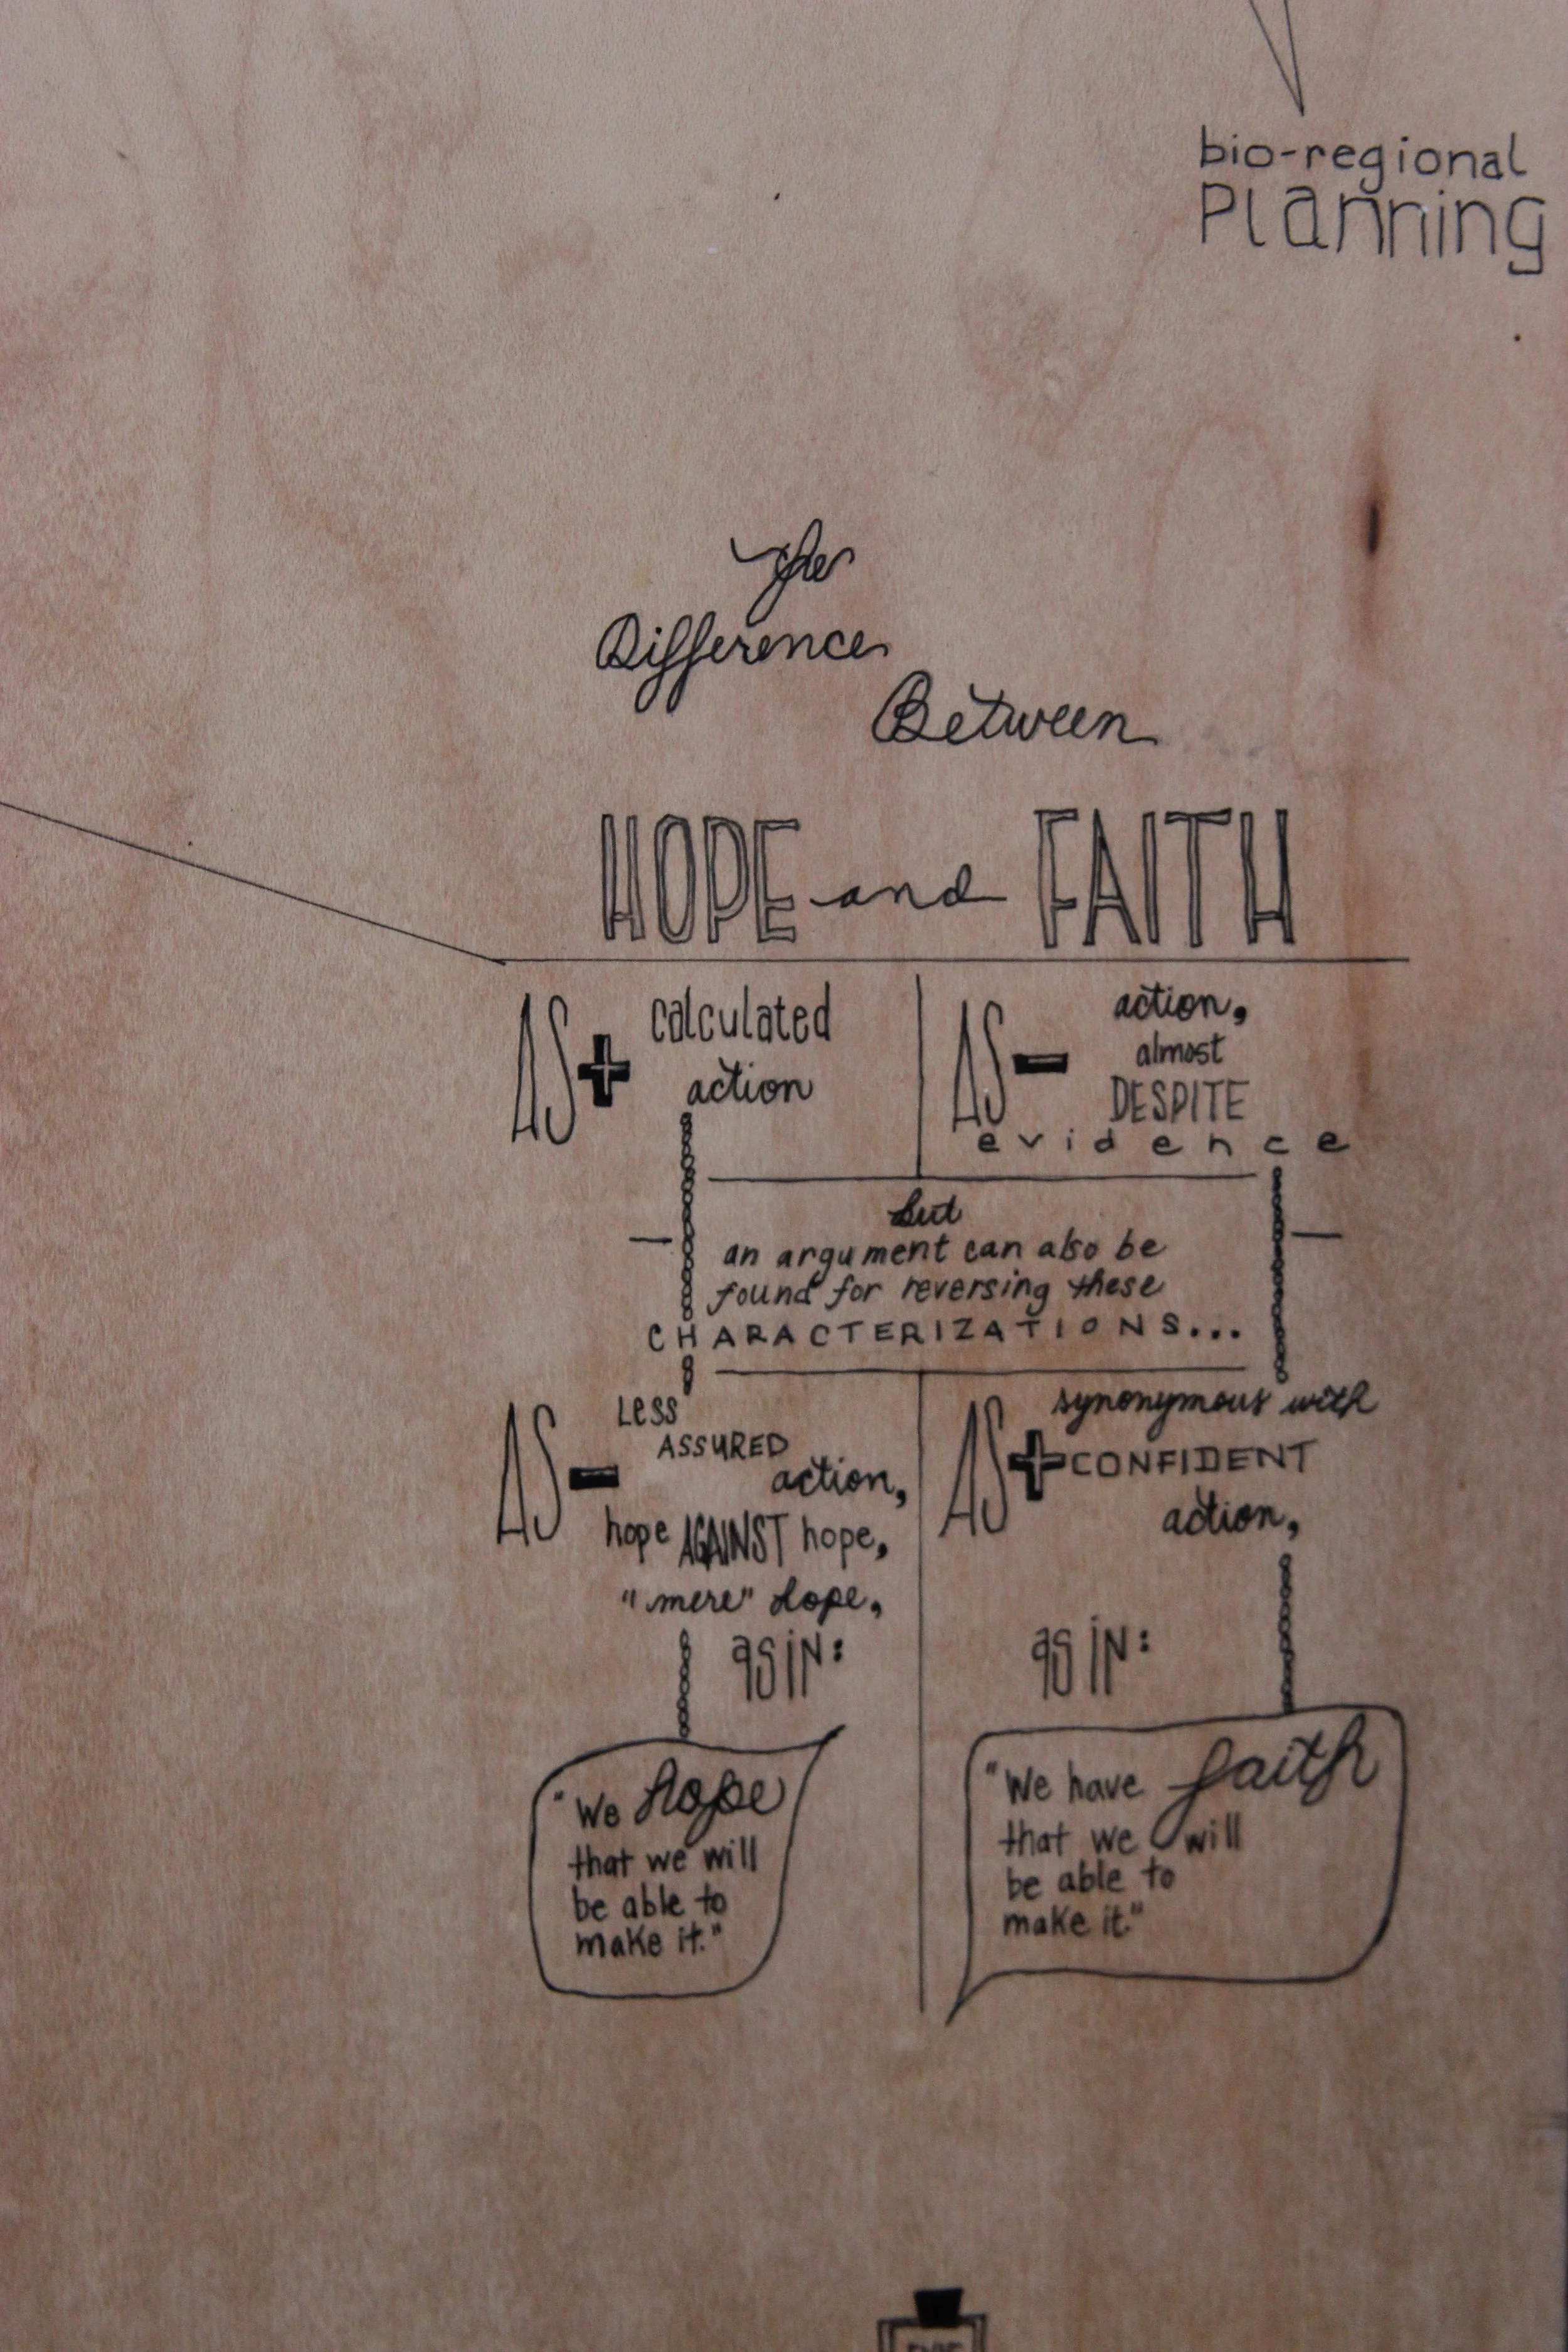 bio-regional
Planning
The
Difference
Between
HOPE and FAITH
AS + calculated
action
AS - action,
almost
DESPITE
evidence
but
an argument can also be
found for reversing these
CHARACTERIZATIONS...
AS - LESS
ASSURED
action,
hope AGAINST hope,
"mere" hope,
as in:
"We hope
that we will
be able to
make it."
AS + synonymous with
CONFIDENT
action,
as in:
"We have faith
that we will
be able to
make it."